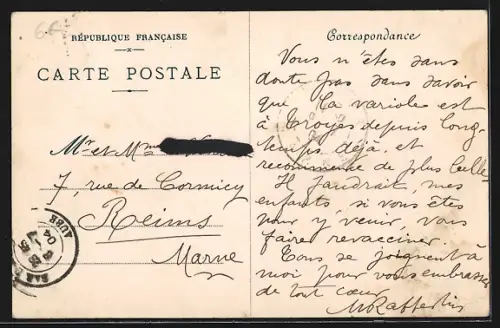 66
RÉPUBLIQUE FRANÇAISE
CARTE POSTALE
Mr et Mme
7, rue de Cormicy
Reims
Marne
AUBE
04
Correspondance
Vous n'êtes sans
doute pas sans savoir
que la variole est
à Troyes depuis long-
temps déjà, et
recommence de plus belle.
Il faudrait, mes
enfants, si vous êtes
pour y venir, vous
faire revacciner.
Tous se joignent à
moi pour vous embrasser
de tout cœur